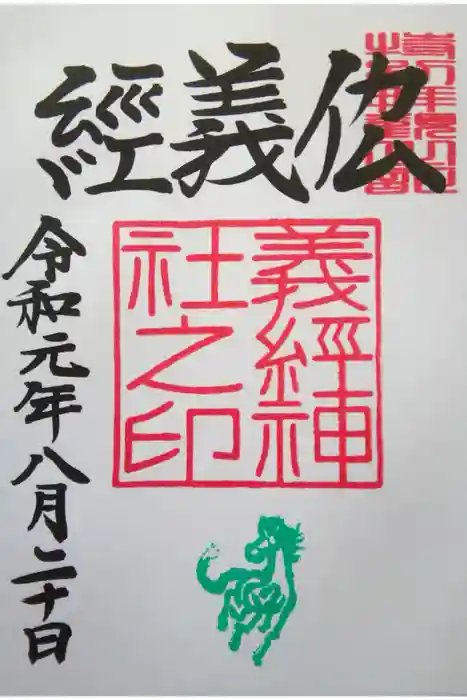 仏義經
義経神
社之印
令和元年八月二十日